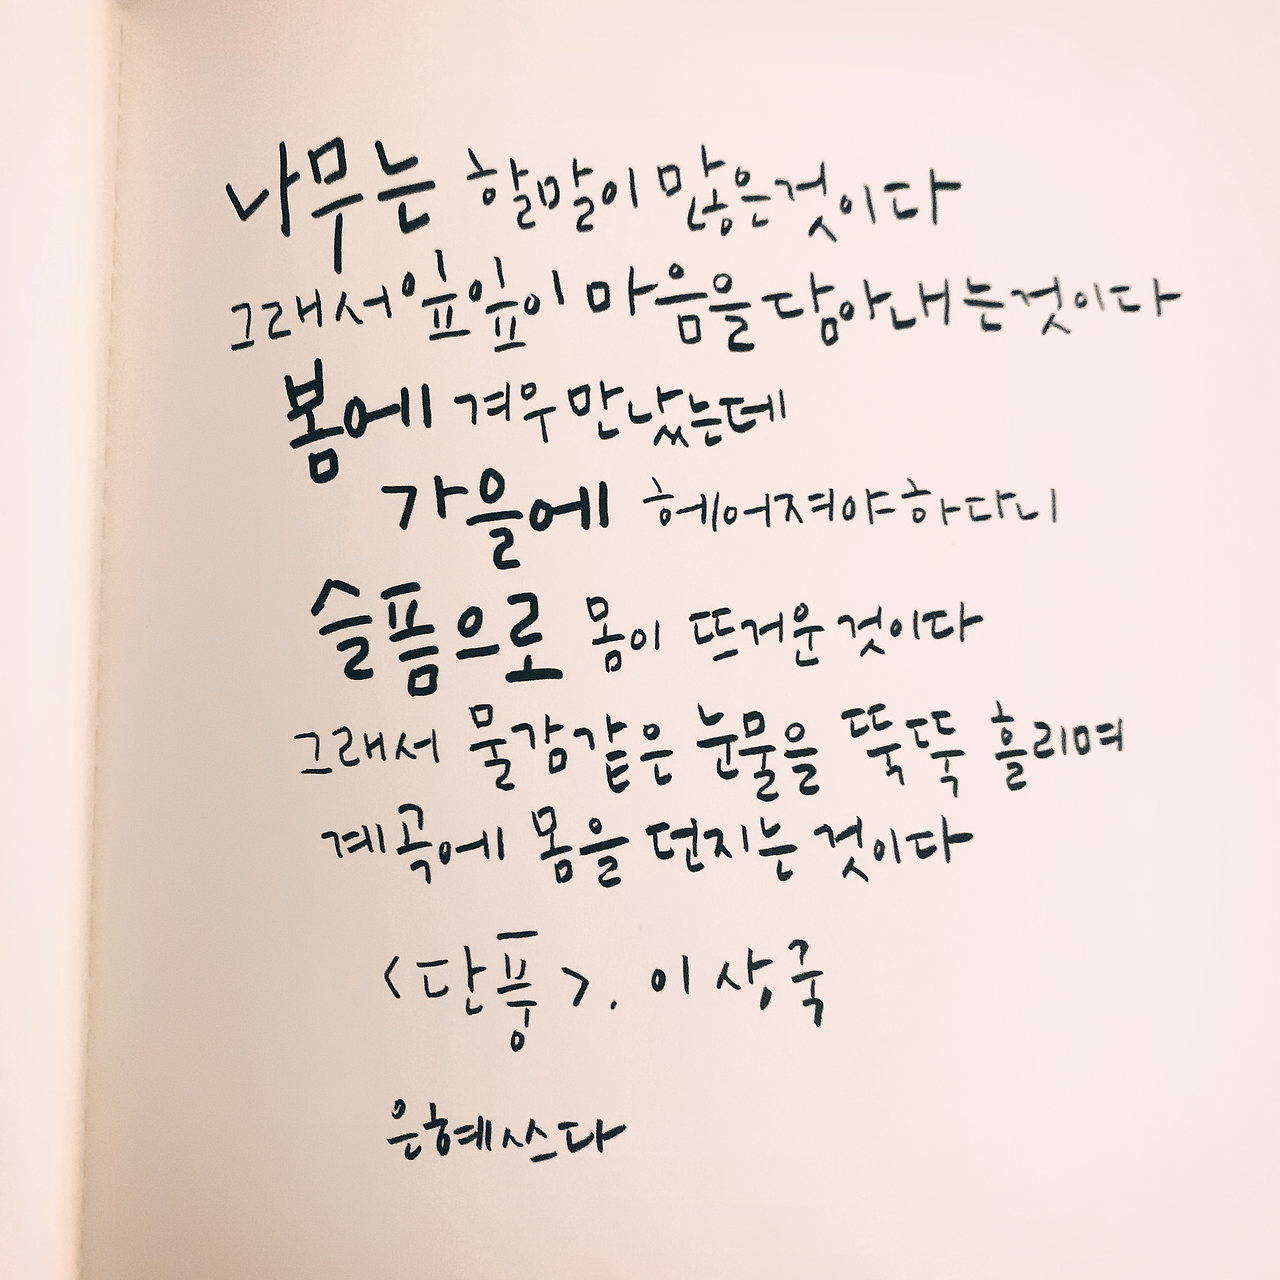 나무는 할말이 많은것이다
그래서 잎잎이 마음을 담아내는것이다
봄에 겨우 만났는데
가을에 헤어져야하다니
슬픔으로 몸이 뜨거운 것이다
그래서 물감같은 눈물을 뚝뚝 흘리며
계곡에 몸을 던지는 것이다
<단풍>. 이상국
은혜쓰다